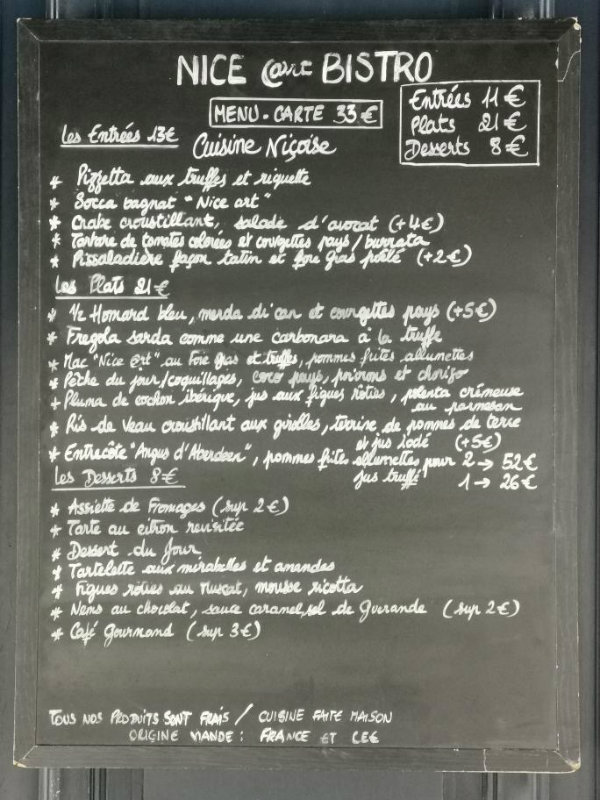 NICE @art BISTRO
MENU-CARTE 33€
Entrées 11€
Plats 21€
Desserts 8€
Les Entrées 13€
Cuisine Niçoise
* Pizzetta aux truffes et riquette
* Socca bagnat "Nice art"
* Crabe croustillant, salade d'avocat (+4€)
* Tartare de tomates colorées et courgettes pays/burrata
* Pissaladière façon tatin et foie gras poêlé (+2€)
Les Plats 21€
* 1/2 Homard bleu, merda di can et courgettes pays (+5€)
* Fregola sarda comme une carbonara à la truffe
* Mac "Nice @rt" au Foie gras et truffes, pommes frites allumettes
* Pêche du jour/coquillages, coco pays, poivrons et chorizo
+ Pluma de cochon ibérique, jus aux figues rôties, polenta crémeuse
au parmesan
* Ris de Veau croustillant aux girolles, terrine de pommes de terre
et jus iodé (+5€)
* Entrecôte "Angus d'Aberdeen", pommes frites allumettes pour 2 → 52€
jus truffé 1 → 26€
Les Desserts 8€
* Assiette de Fromages (sup 2€)
* Tarte au citron revisitée
* Dessert du Jour
* Tartelette aux mirabelles et amandes
* Figues rôties au Muscat, mousse ricotta
* Nems au chocolat, sauce caramel, sel de Guerande (sup 2€)
* Café Gourmand (sup 3€)
TOUS NOS PRODUITS SONT FRAIS / CUISINE FAITE MAISON
ORIGINE VIANDE : FRANCE ET CEE